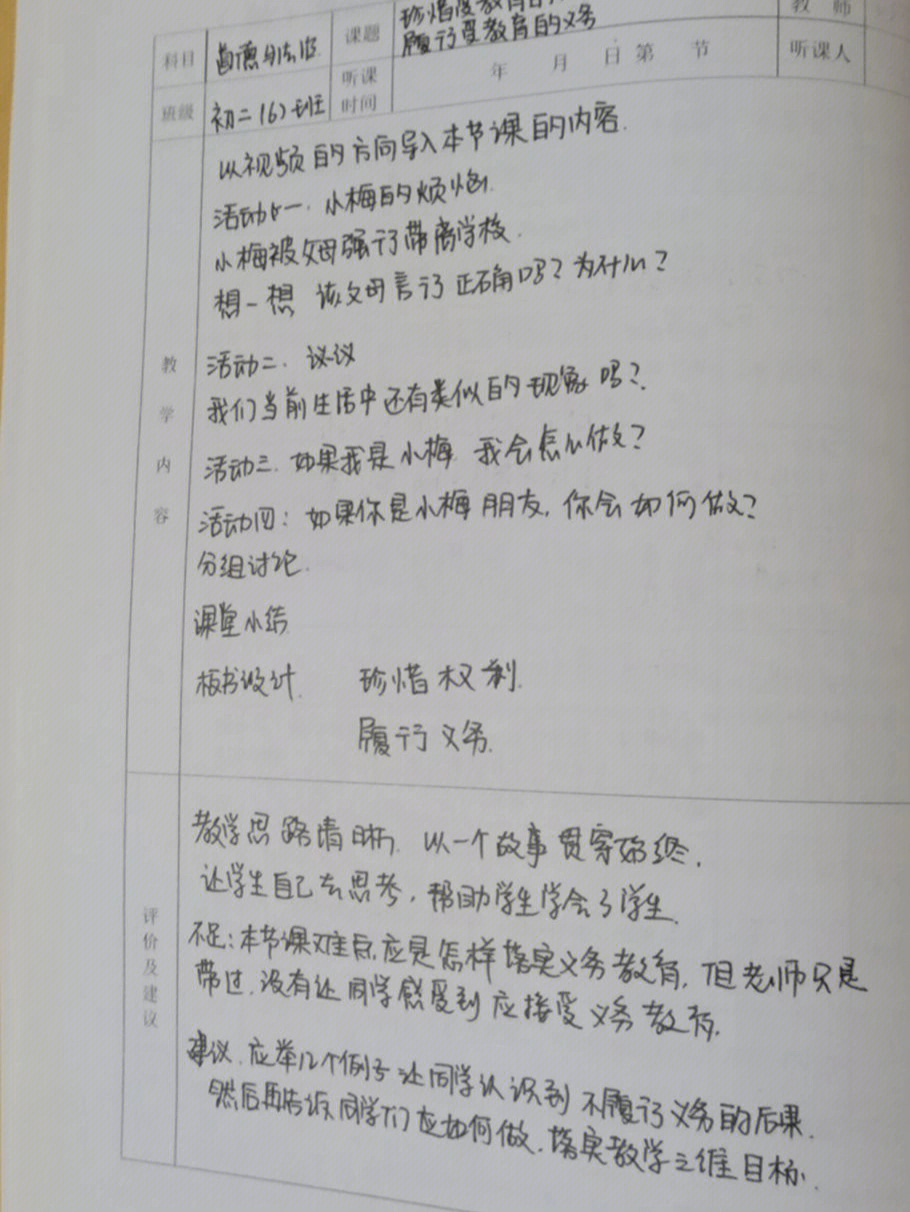 珍惜受教育的
科目 道德与法治 课题 履行受教育的义务 教师
班级 初二(6)班 听课时间 年 月 日 第 节 听课人
教学内容
以视频的方向导入本节课的内容.
活动一. 小梅的烦恼.
小梅被父母强行带离学校.
想一想 该父母言行正确吗?为什么?
活动二. 议议
我们当前生活中还有类似的现象吗?
活动三. 如果我是小梅 我会怎么做?
活动四: 如果你是小梅朋友, 你会如何做?
分组讨论.
课堂小结
板书设计. 珍惜权利.
履行义务.
评价及建议
教学思路清晰. 以一个故事贯穿始终,
让学生自己去思考, 帮助学生学会了学生.
不足:本节课难点应是怎样落实义务教育, 但老师只是
带过. 没有让同学感受到应接受义务教育.
建议. 应举几个例子让同学认识到不履行义务的后果.
然后再告诉同学们应如何做. 落实教学三维目标.